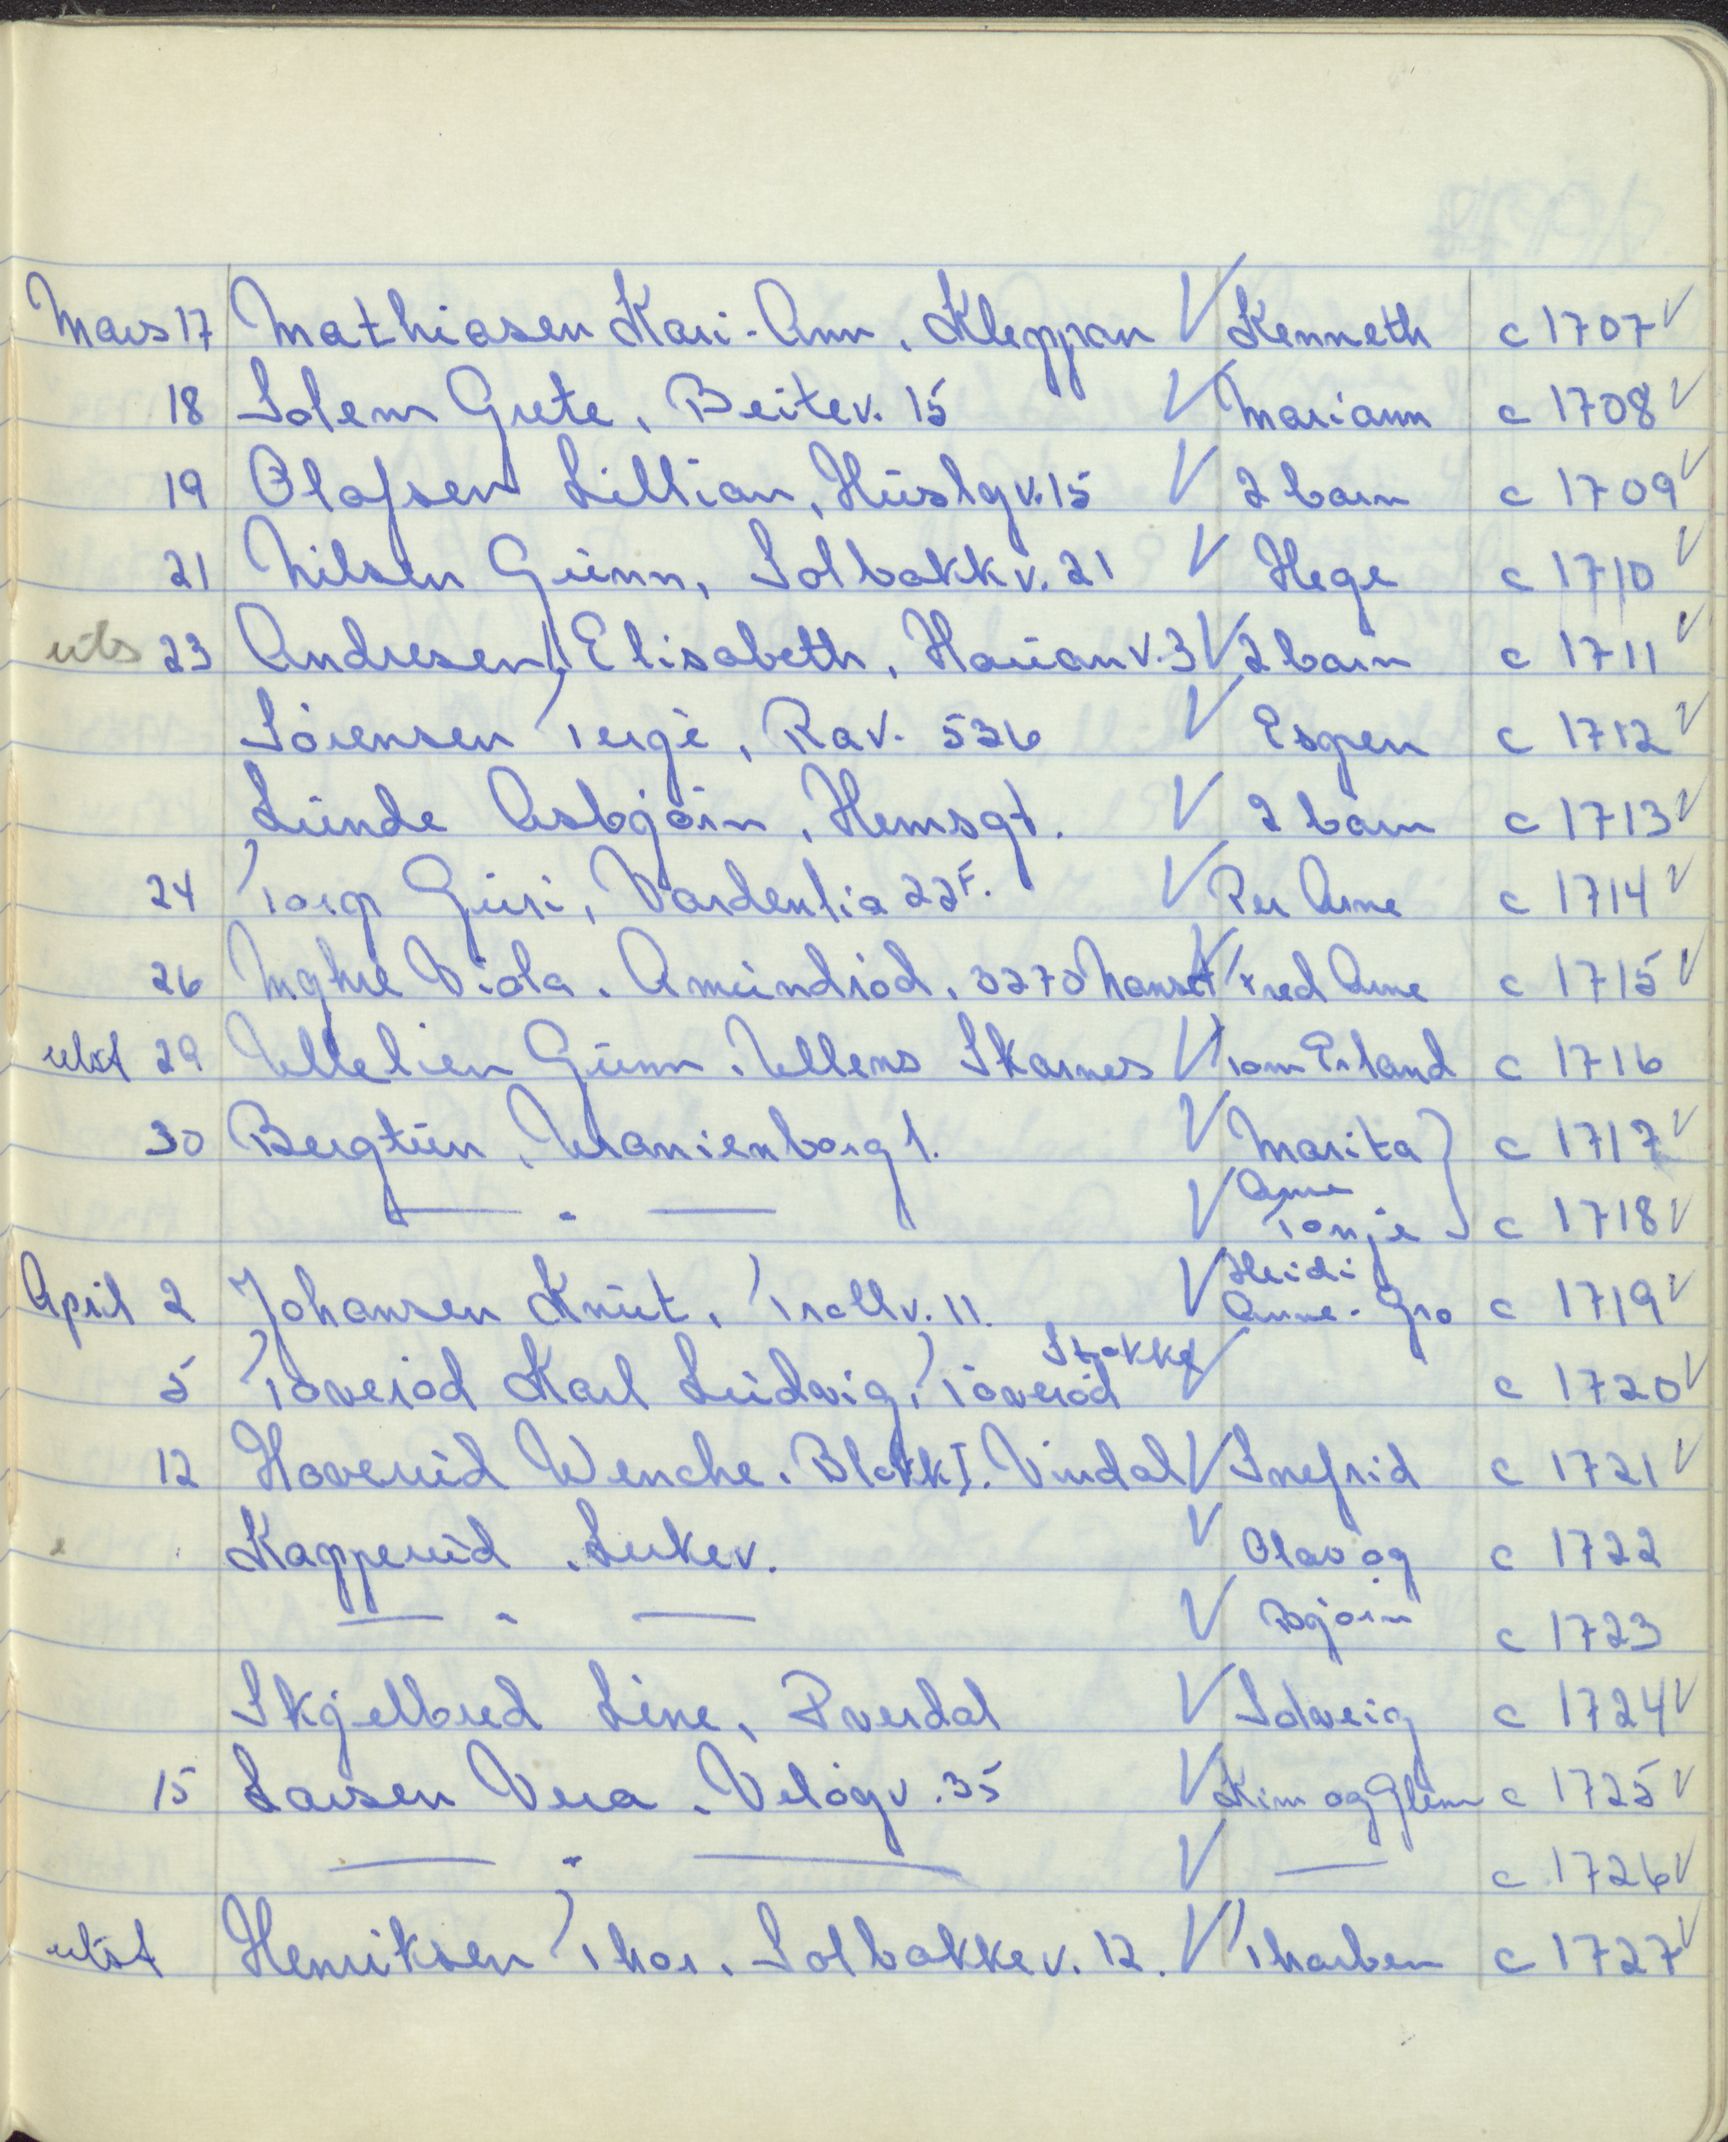 Mars 17 Mathiasen Kari-Ann, Kleppan V Kenneth c 1707 V
18 Solem Grete, Beitev. 15 V Mariann c 1708 V
19 Olafsen Lillian, Huslgv. 15 V 2 barn c 1709 V
21 Nilsen Gunn, Solbakkv. 21 V Hege c 1710 V
uts 23 Andresen Elisabeth, Hauanv. 3 V 2 barn c 1711 V
Sörensen Terje, Rav. 536 V Espen c 1712 V
Lunde Asbjörn, Hemsgt. V 2 barn c 1713 V
24 Torp Guri, Vardenlia 22F. V Per Arne c 1714 V
26 Myhre Viola, Amundröd, 3270 V Fred Arne c 1715 V
utst 29 Ullelien Gunn, Ullens Skarnes V Tom Erland c 1716
30 Bergtun, Uranienborg 1. V Marita } c 1717 V
— " — V Anne Tonje c 1718 V
April 2 Johansen Knut, Trollv. 11. V Heidi Anne-Gro c 1719 V
5 Töveröd Karl Ludvig, Töveröd Stokke V c 1720 V
12 Hoverud Wenche, Blakk I. V Snefrid c 1721 V
Kapperud, Lerkev. V Olav og c 1722
— " — V Bjørn c 1723
Skjelbred Line, Pverdal V Solveig c 1724 V
15 Larsen Vera, Velögv. 35 V Kim og Glenn c 1725 V
— " — V — c 1726 V
utst Henriksen Thor, Solbakkev. 12. V Tharben c 1727 V